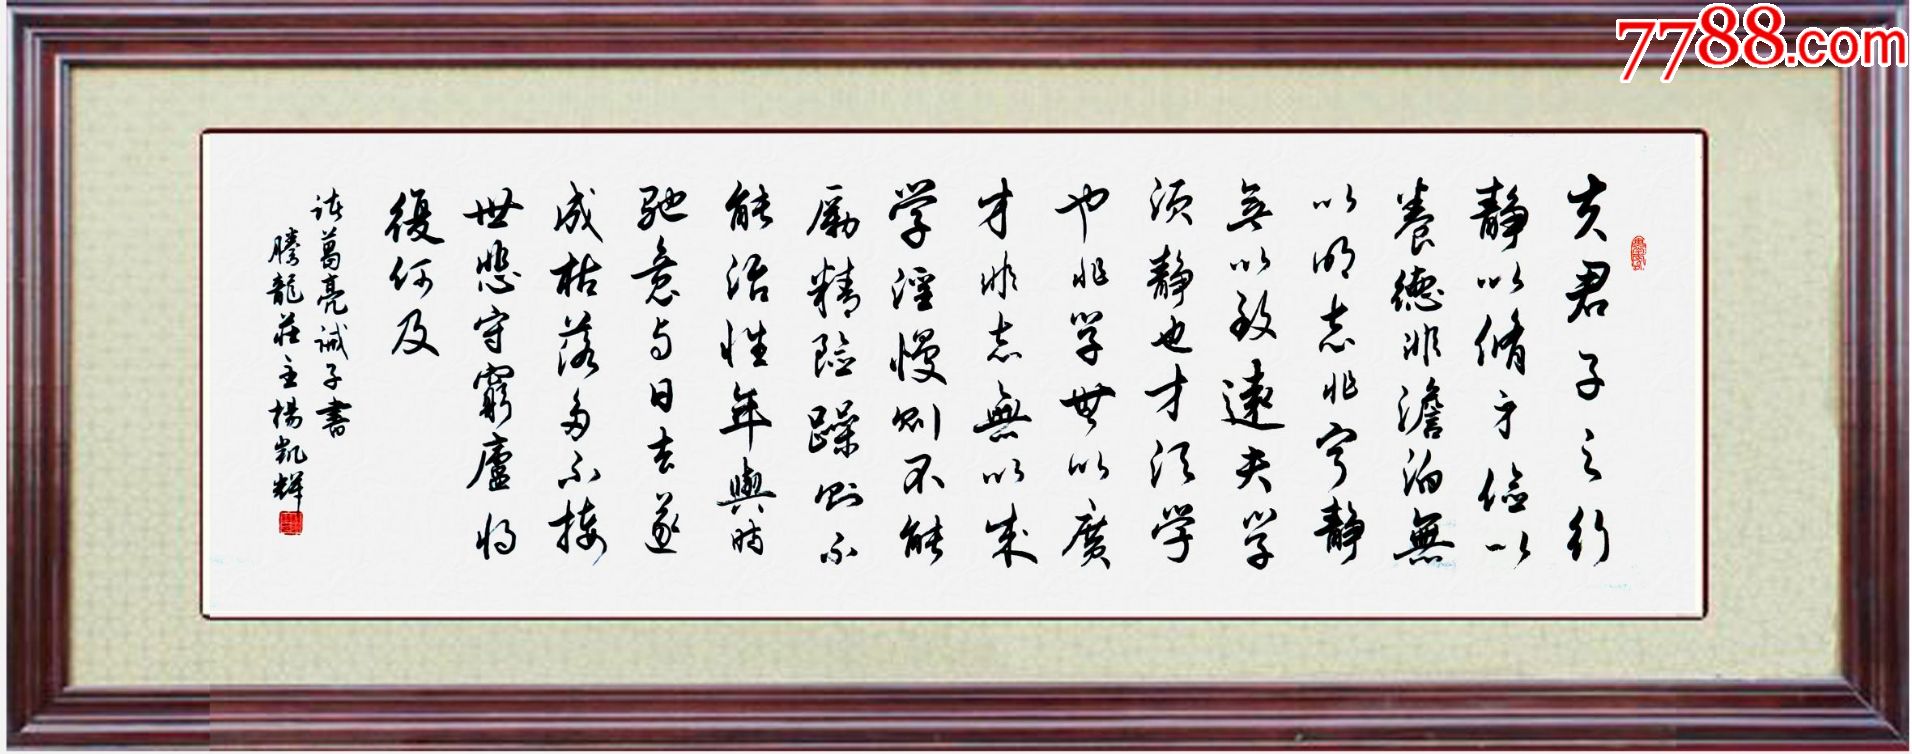 7788.com
夫君子之行
静以脩身俭以
養德非澹泊無
以明志非宁静
無以致遠夫学
须静也才须学
也非学無以廣
才非志無以成
学淫慢则不能
励精险躁则不
能治性年與时
驰意与日去遂
成枯落多不接
世悲守窮廬将
復何及
诸葛亮诫子書
騰龍莊主楊凱輝